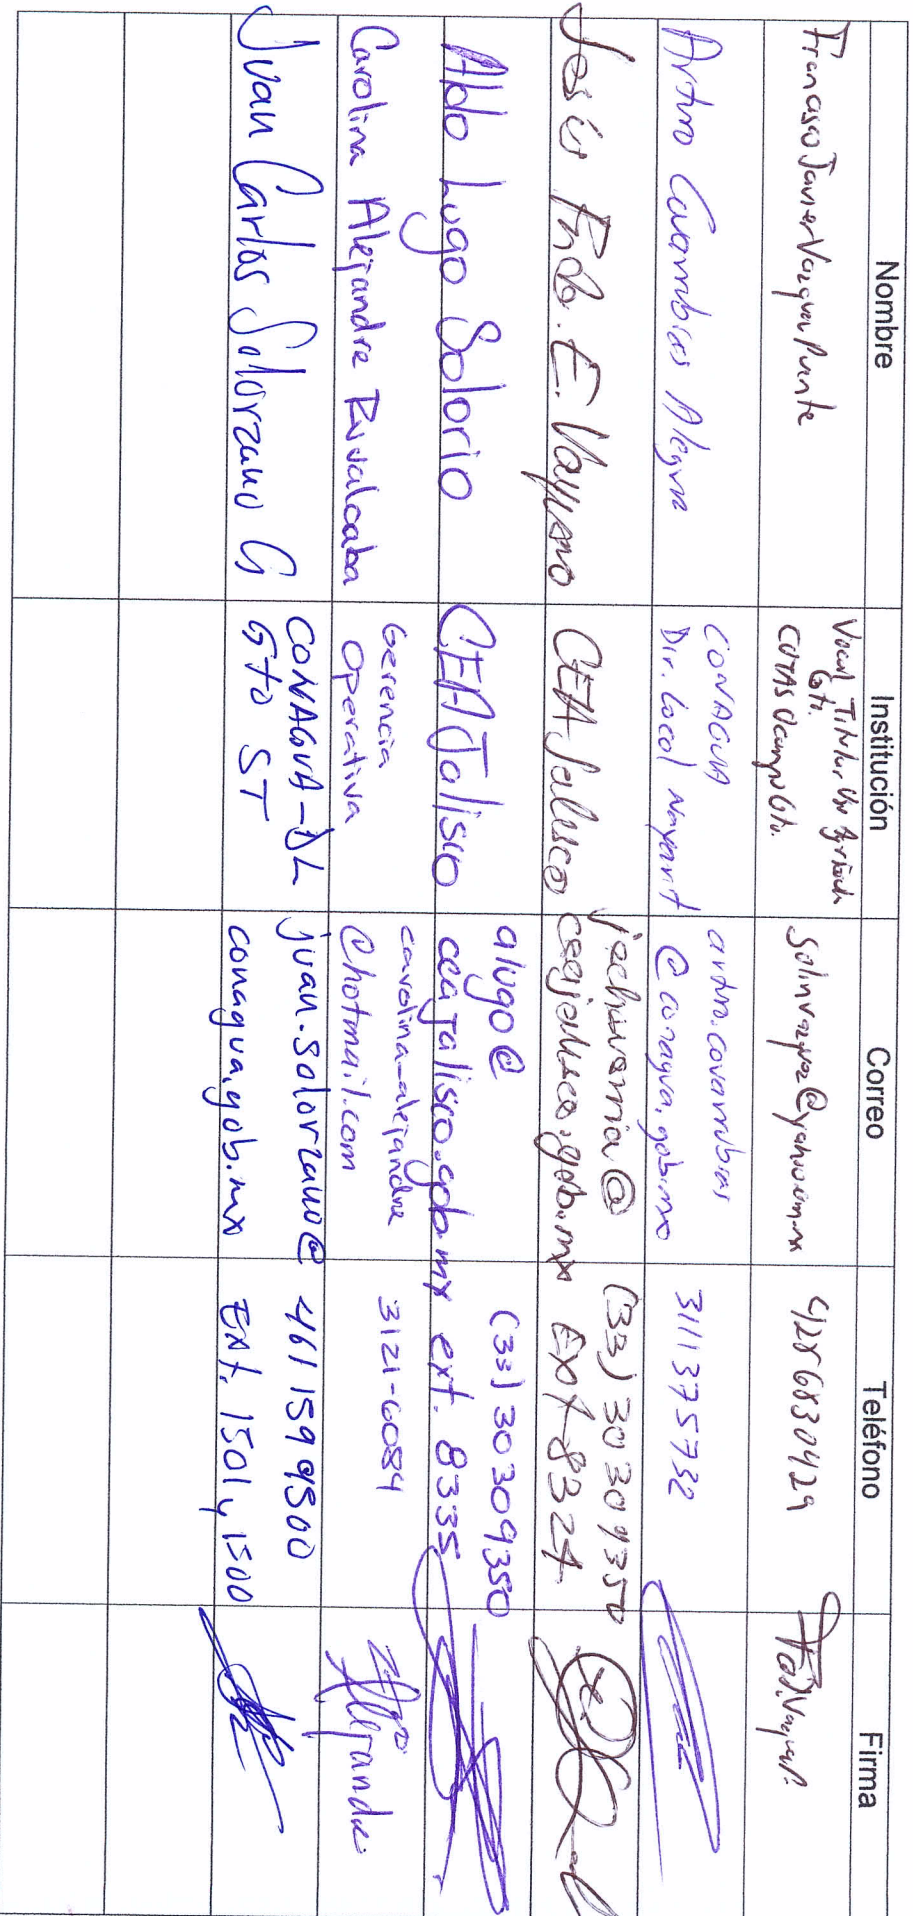 Nombre Institución Correo Teléfono Firma
Francisco Javier Vazquez Puente
Vocal Titular Uso Agrícola
Gto.
COTAS Ocampo Gto.
@yahoo.com.mx
4286830429
Arturo Covarrubias Alegria
CONAGUA
Dir. Local Nayarit
arturo.covarrubias
@conagua.gob.mx
3111375732
Jesús Fndo. E. Vayllano
CEA Jalisco
jechavarria@
ceajalisco.gob.mx
(33) 30309350
Ext 8324
Aldo Lugo Solorio
CEA Jalisco
alugo@
ceajalisco.gob.mx
(33) 30309350
ext. 8335
Carolina Alejandre Ruvalcaba
Gerencia
Operativa
carolina_alejandre
@hotmail.com
3121-6084
Alejandre
Juan Carlos Solorzano G
CONAGUA-DL
GTO ST
juan.solorzano@
conagua.gob.mx
461 159 9500
Ext. 1501, 1500